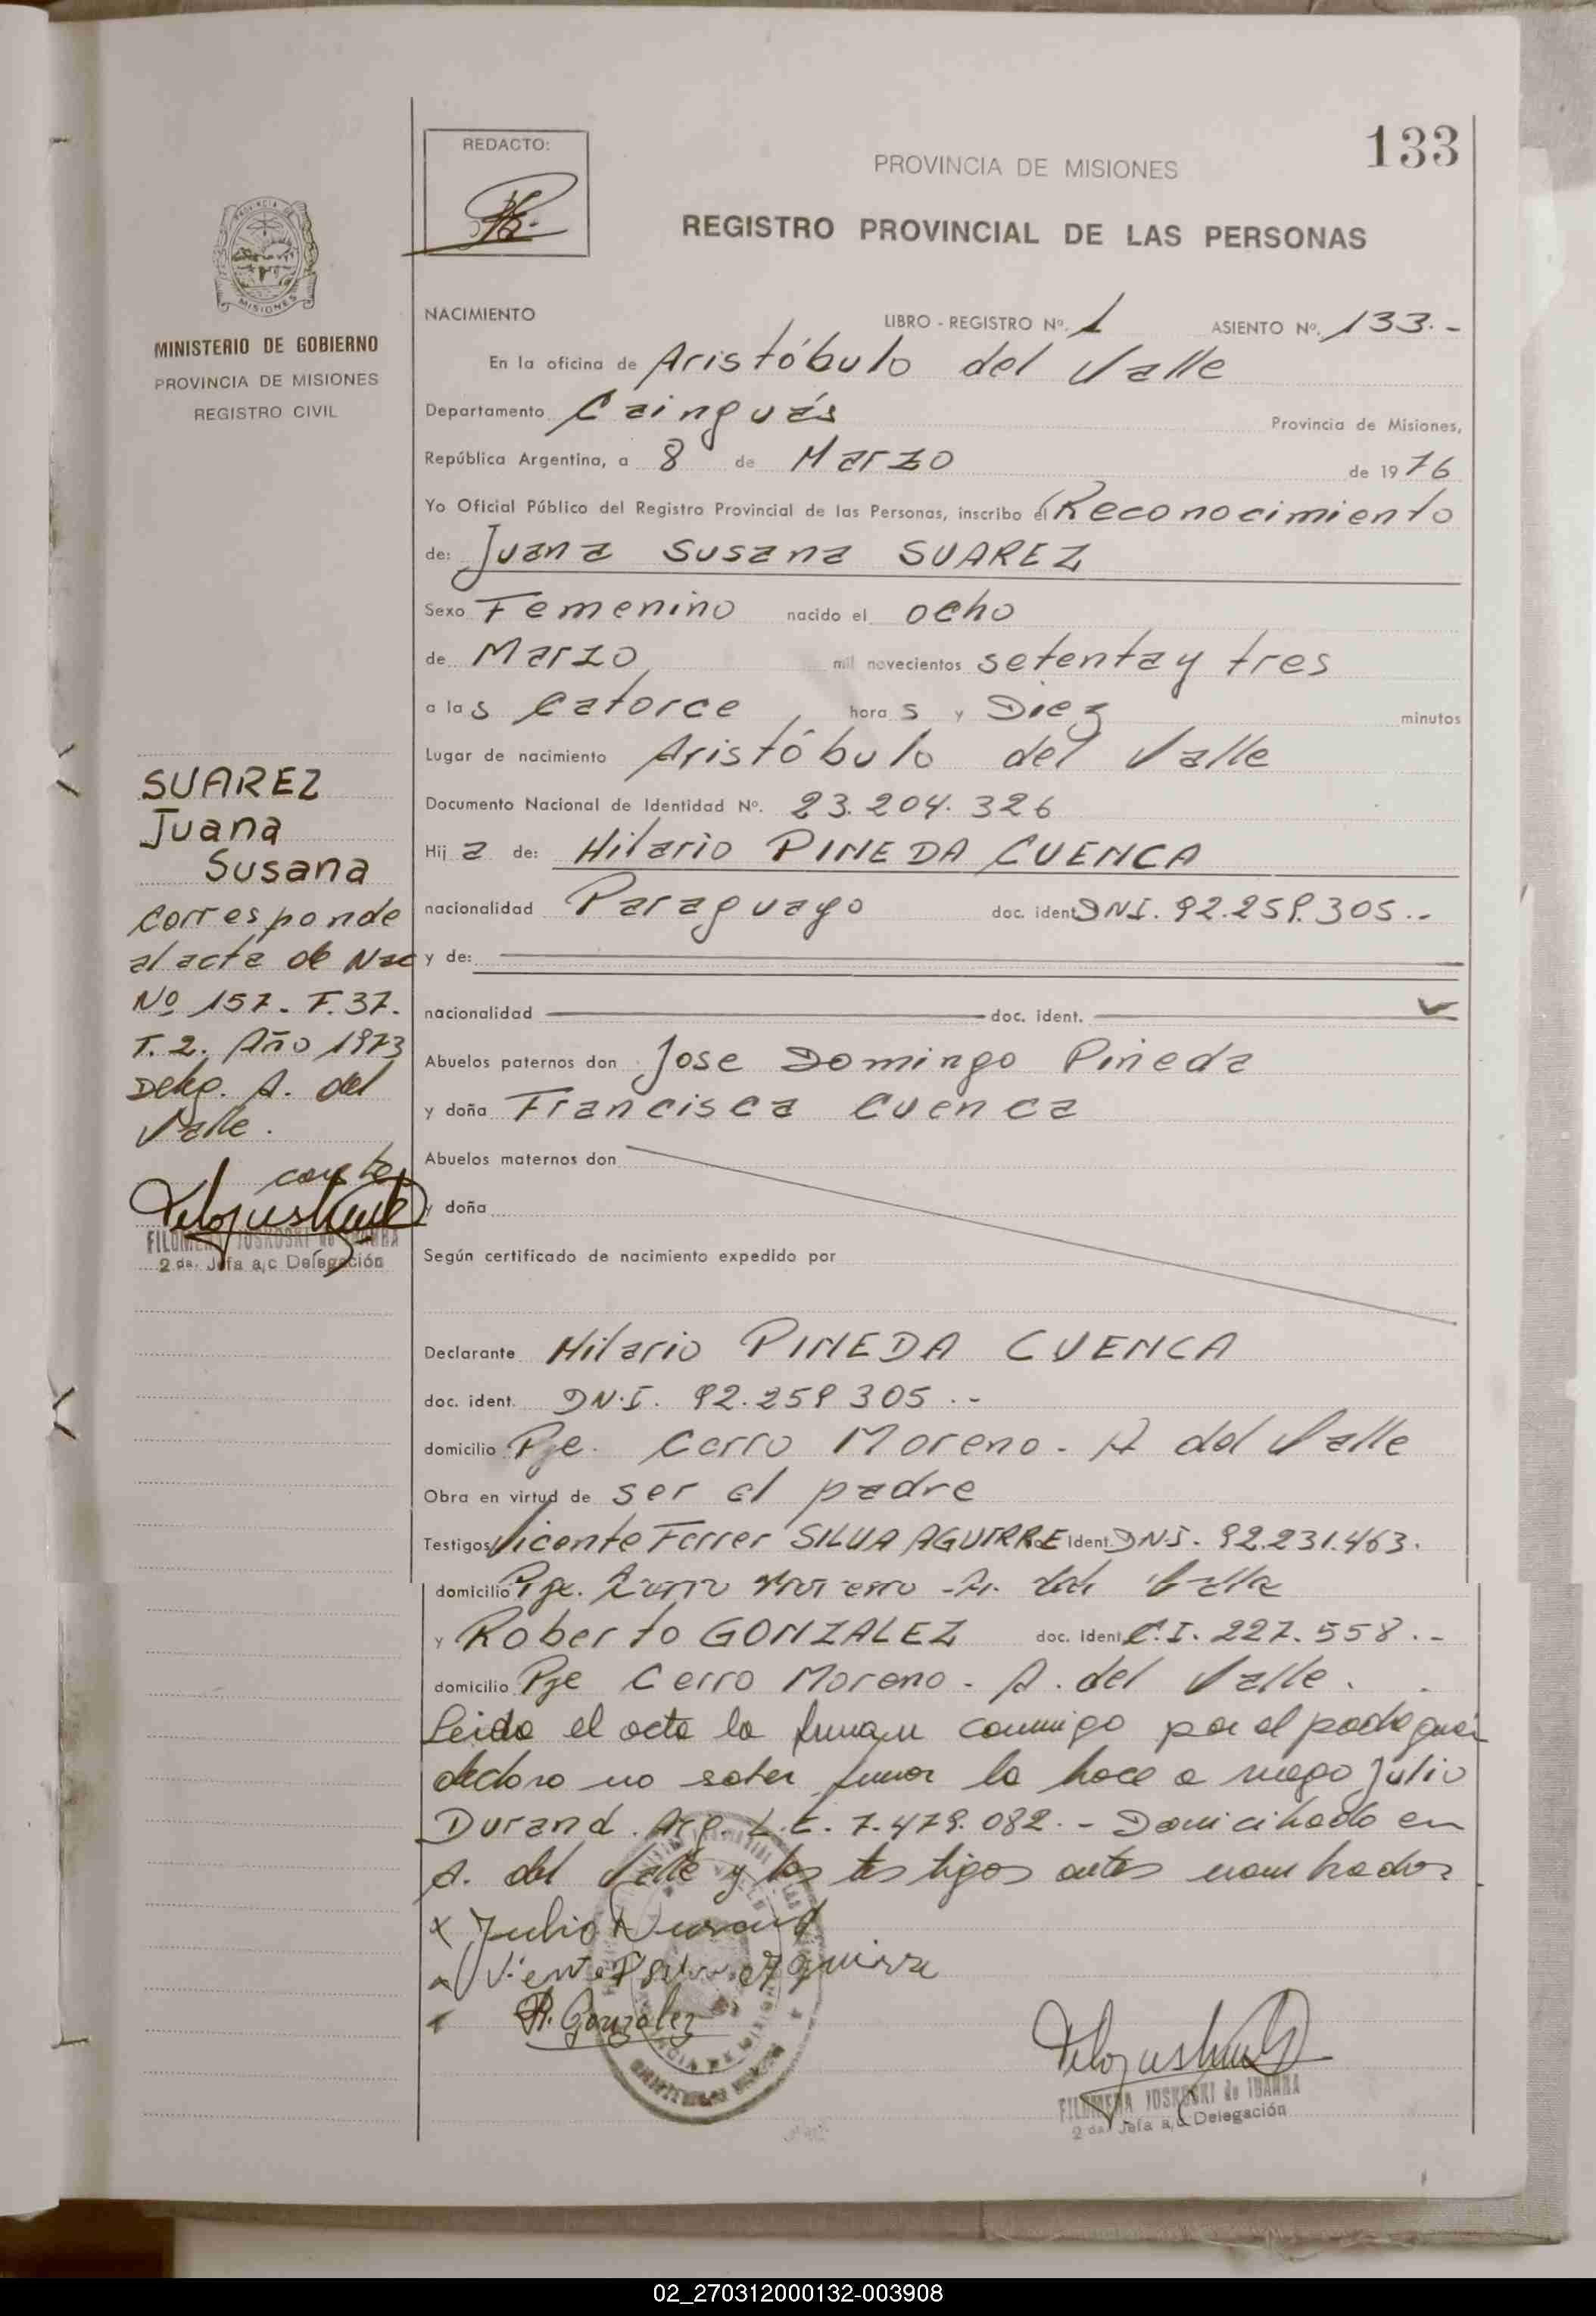 133
REDACTO:
PROVINCIA DE MISIONES
REGISTRO PROVINCIAL DE LAS PERSONAS
MISIONES
MINISTERIO DE GOBIERNO
PROVINCIA DE MISIONES
REGISTRO CIVIL
NACIMIENTO LIBRO - REGISTRO Nº. 1 ASIENTO Nº. 133.-
En la oficina de Aristóbulo del Valle
Departamento Cainguás Provincia de Misiones,
República Argentina, a 8 de Marzo de 1976
Yo Oficial Público del Registro Provincial de las Personas, inscribo el Reconocimiento
de: Juana Susana SUAREZ
Sexo Femenino nacido el ocho
de Marzo mil novecientos setenta y tres
a las catorce, horas y Diez minutos
Lugar de nacimiento Aristóbulo del Valle
Documento Nacional de Identidad Nº. 23.204.326
Hija de: Hilario PINEDA CUENCA
nacionalidad Paraguayo doc. ident. DNI. 92.259.305.-
y de:
nacionalidad doc. ident.
Abuelos paternos don Jose Domingo Pineda
y doña Francisca Cuenca
Abuelos maternos don
y doña
Según certificado de nacimiento expedido por
Declarante Hilario PINEDA CUENCA
doc. ident. DN.I. 92.259 305.-
domicilio Pje. Cerro Moreno - A del Valle
Obra en virtud de ser el padre
Testigos Vicente Ferrer SILVA AGUIRRE Ident. DNI. 92.231.463.
domicilio Pje. Cerro Moreno - A. del Valle
y Roberto GONZALEZ doc. Ident. C.I. 227.558.-
domicilio Pje Cerro Moreno - A. del Valle.
Leida el acta la firman conmigo por el padre quien
declaro no saber firmar lo hace a ruego Julio
Durand. Arg. L.E. 7.479.082.- Domiciliado en
A. del Valle y los testigos antes nombrados
x Julio Durand
Aguirre
R. Gonzalez
FILOMENA JOSKOSKI de IBARRA
2 da. Jefa a/c Delegación
SUAREZ
Juana
Susana
Corresponde
al acta de Nac
Nº 157. F.37.
T.2. Año 1973
Deleg. A. del
Valle.
conste
FILOMENA JOSKOSKI de IBARRA
2 da. Jefa a/c Delegación
02_270312000132-003908